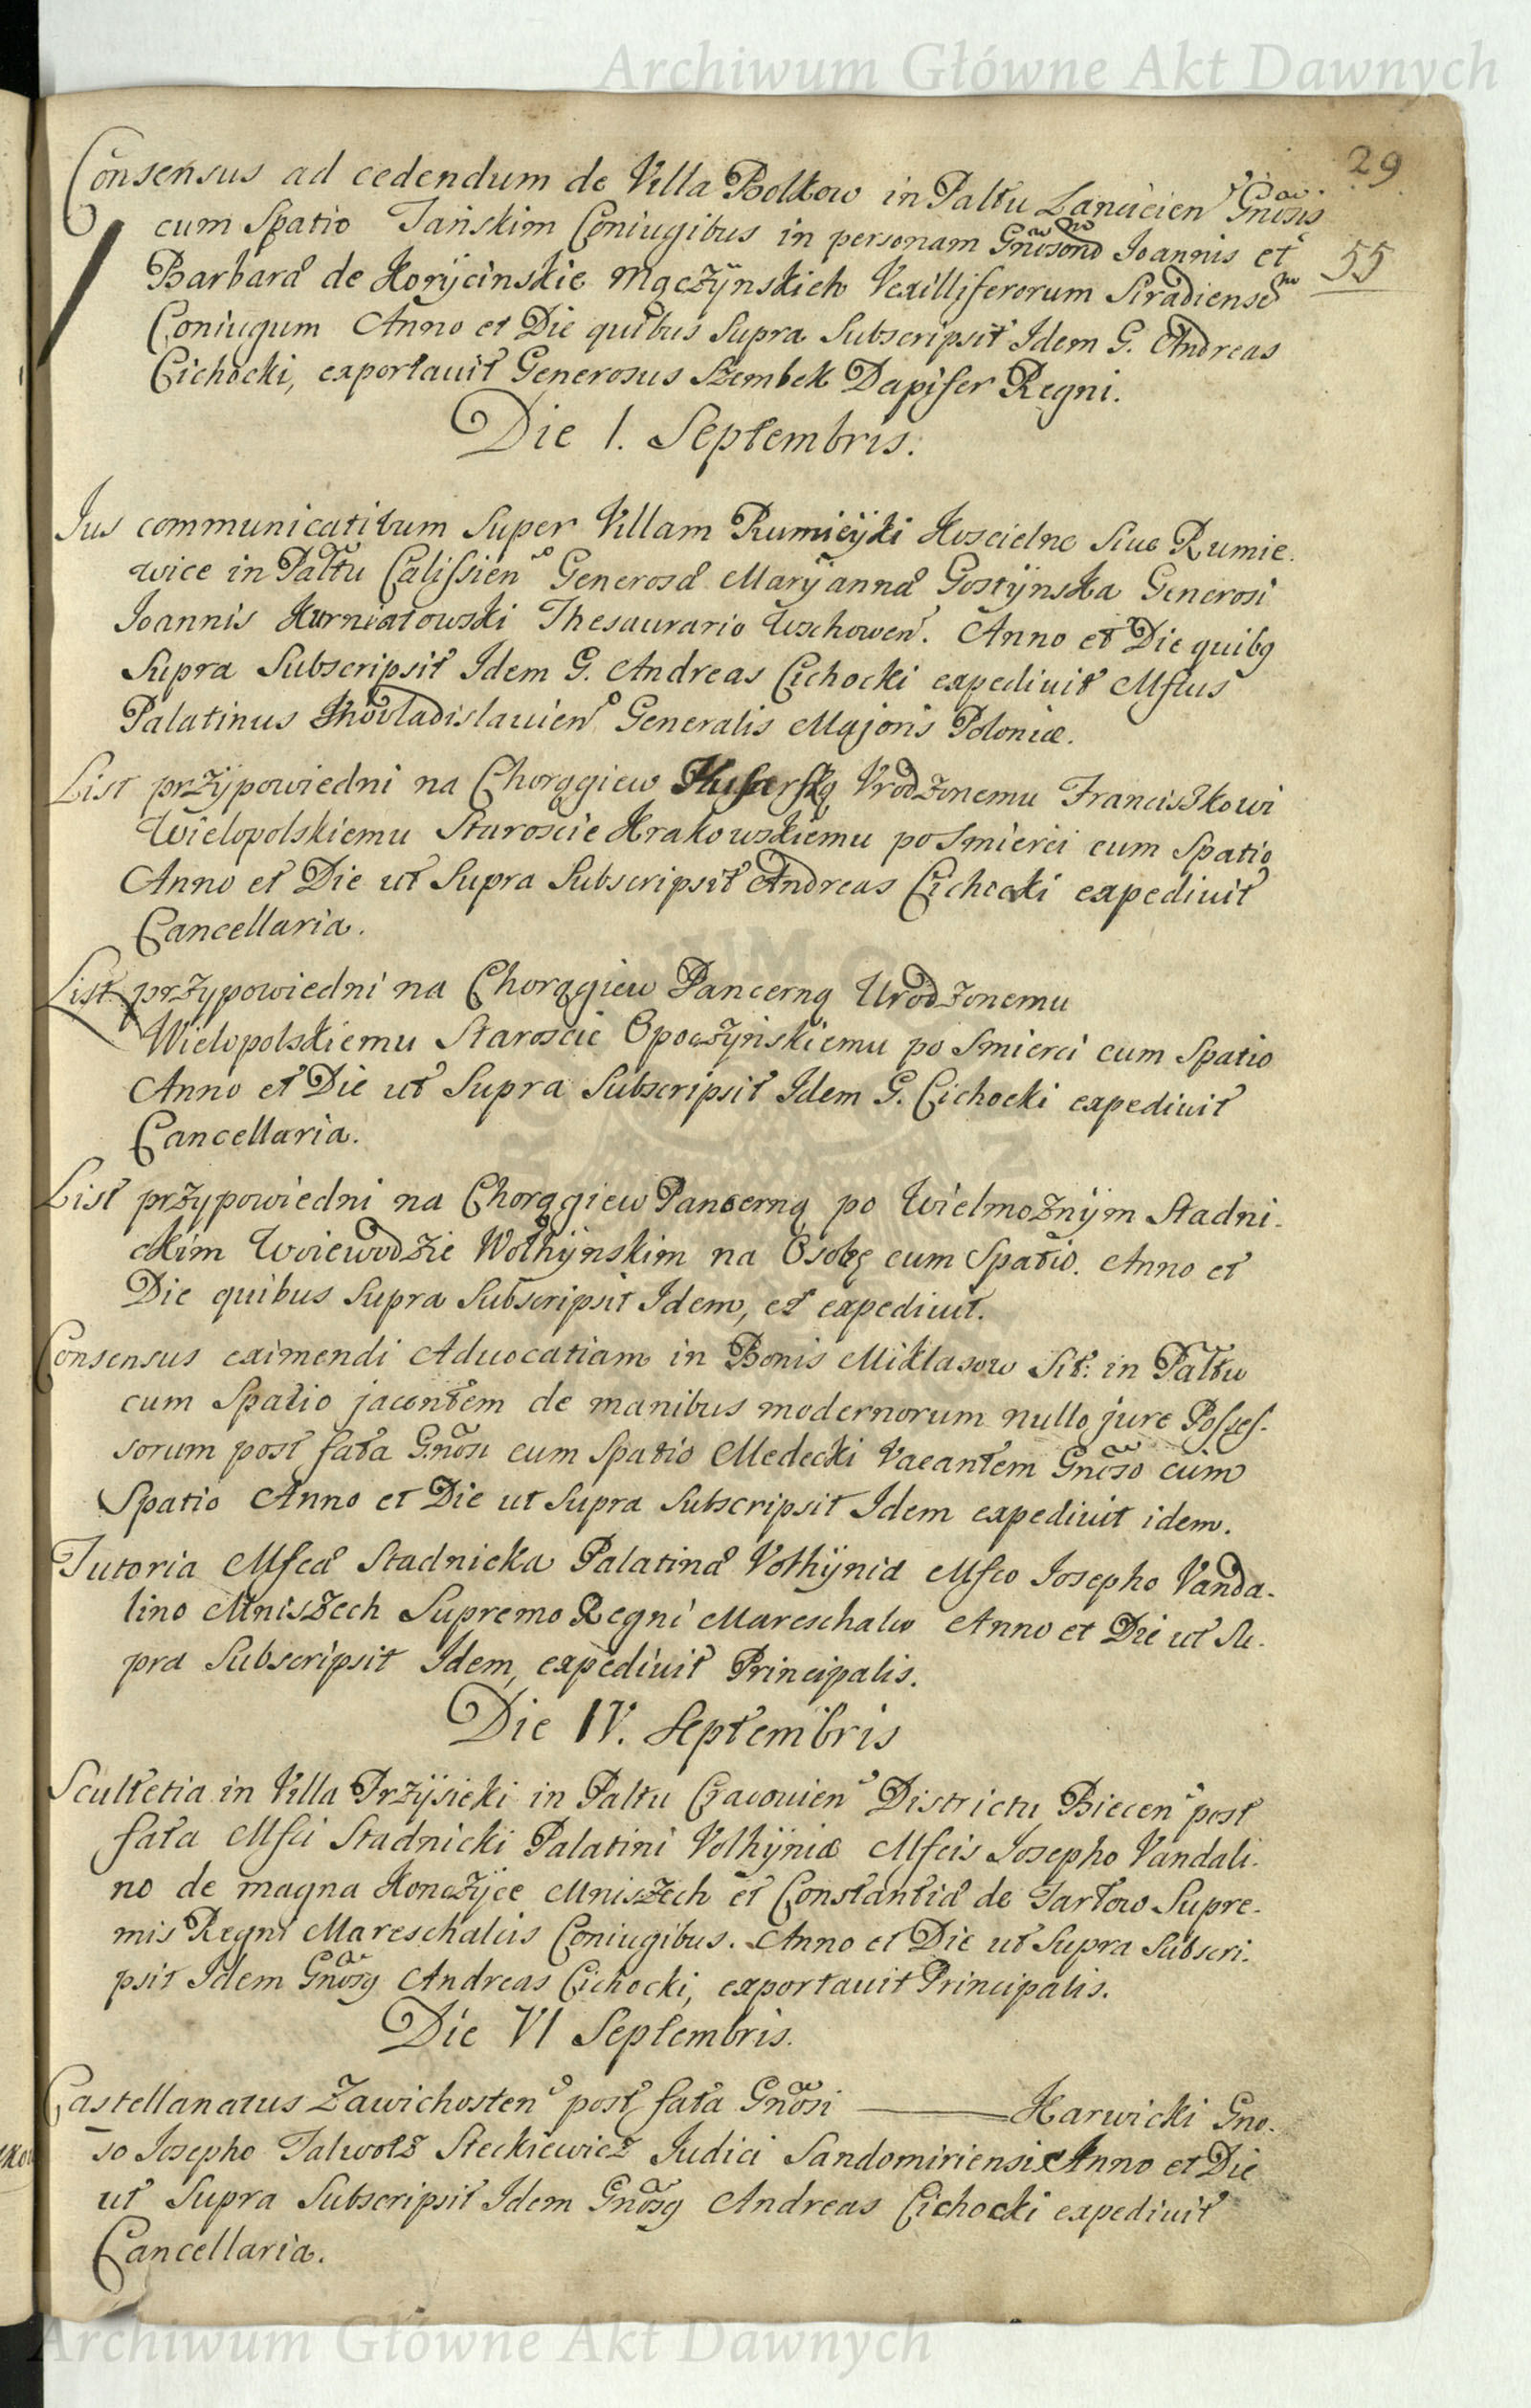 Archiwum Główne Akt Dawnych
29
55
Consensus ad cedendum de Villa Boltow in Paltu Lancicien Gnosis
cum Spatio Tańskim Coniugibus in personam Gnosond Joannis et
Barbara de Korycinskie Mączÿnskich Vexilliferorum Siradiensem
Coniugum Anno et Die quibus Supra Subscripsit Idem G. Andreas
Cichocki, exportavit Generosus Szembek Dapifer Regni.
Die 1. Septembris.
Jus communicativum Super Villam Rumieÿki Koscielne Siue Rumie.
wice in Paltu Calissien Generosa Marÿanna Gostÿnska Generosi
Joannis Kurnatowski Thesaurario Wschowen. Anno et Die quibg
Supra Subscripsit Idem G. Andreas Cichocki expedivit Mfcus
Palatinus Jnovladislauien Generalis Majoris Poloniæ.
List przÿpowiedni na Chorągiew Husarską Vrodzonemu Franciszkowi
Wielopolskiemu Staroscie Krakowskiemu po Smierci cum Spatio
Anno et Die ut Supra Subscripsit Andreas Cichocki expedivit
Cancellaria.
List przypowiedni na Chorągiew Pancerną Urodzonemu
Wielopolskiemu Staroscie Opoczÿnskiemu po Smierci cum Spatio
Anno et Die ut Supra Subscripsit Idem G. Cichocki expedivit
Cancellaria.
List przypowiedni na Chorągiew Pancerną po Wielmożnÿm Stadni-
ckim Woiewodzie Wołhÿnskim na Osobę cum Spatio. Anno et
Die quibus Supra Subscripsit Idem, et expedivit.
Consensus eximendi Advocatiam in Bonis Miklasow Sit: in Paltu
cum Spatio jacentem de manibus modernorum nullo jure Posses-
sorum post fata Gnosi cum Spatio Medecki Vacantem Gnoso cum
Spatio Anno et Die ut Supra Subscripsit Idem expedivit idem.
Tutoria Mfca Stadnicka Palatina Volhÿnia Mfco Josepho Vanda-
lino Mniszech Supremo Regni Mareschalco Anno et Die ut Su-
pra Subscripsit Idem, expedivit Principalis.
Die IV. Septembris
Scultetia in Villa Przÿsieki in Paltu Cracouien Districtu Biecen post
fata Mfci Stadnicki Palatini Volhÿniæ Mfcis Josepho Vandali-
no de magna Konczÿce Mniszech et Constantia de Tarłow Supre-
mis Regni Mareschalcis Coniugibus. Anno et Die ut Supra Subscri-
psit Idem Gnosg Andreas Cichocki, exportavit Principalis.
Die VI Septembris.
Castellanatus Zawichosten post fata Gnosi ——— Karwicki Gno-
so Josepho Talwosz Steckiewicz Judici Sandomiriensi Anno et Die
ut Supra Subscripsit Idem Gnosg Andreas Cichocki expedivit
Cancellaria.
Archiwum Główne Akt Dawnych